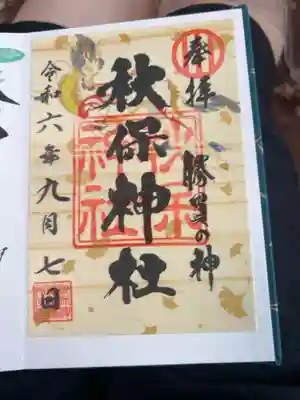 奉拝
勝負の神
秋保神社
令和六年九月七日